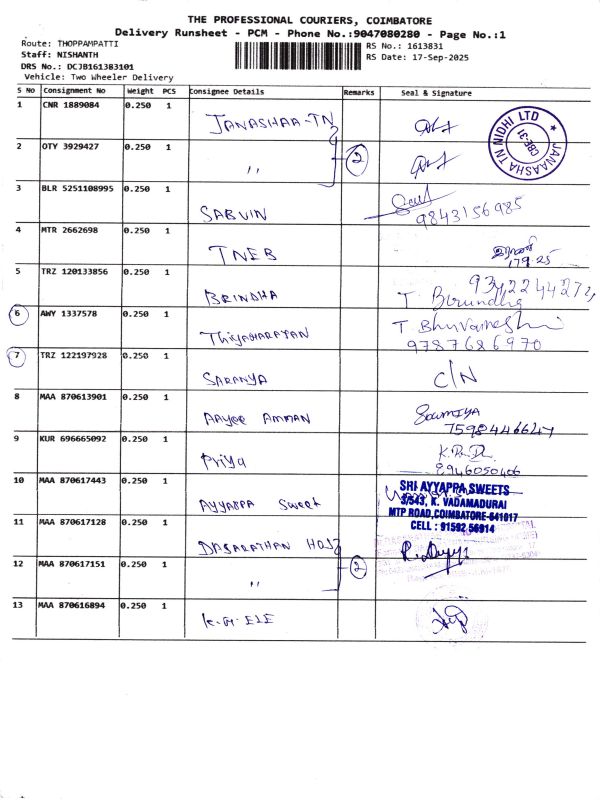 THE PROFESSIONAL COURIERS, COIMBATORE
Delivery Runsheet - PCM - Phone No.:9047080280 - Page No.:1
Route: THOPPAMPATTI
Staff: NISHANTH
DRS No.: DCJB161383101
Vehicle: Two Wheeler Delivery
RS No.: 1613831
RS Date: 17-Sep-2025
S No Consignment No Weight PCS Consignee Details Remarks Seal & Signature
1 CNR 1889084 0.250 1 JANASHAA-TN
JANAASHA TN NIDHI LTD ★ CBE-31
2 OTY 3929427 0.250 1 " 2
3 BLR 5251108995 0.250 1 SABVIN 9843156985
4 MTR 2662698 0.250 1 TNEB
5 TRZ 120133856 0.250 1 BRINDHA T
6 AWY 1337578 0.250 1 T. Bhuvaneshi
9787686970
7 TRZ 122197928 0.250 1 SARANYA C/N
8 MAA 870613901 0.250 1 AAYEE AMMAN Sowmiya
7598446647
9 KUR 696665092 0.250 1 Priya
8946050406
10 MAA 870617443 0.250 1 AYYAPPA Sweet
SRI AYYAPPA SWEETS
3/543, K. VADAMADURAI
MTP ROAD, COIMBATORE-641017
CELL : 91592 56914
11 MAA 870617128 0.250 1 DASARATHAN HOS
12 MAA 870617151 0.250 1 " 2
13 MAA 870616894 0.250 1 K.G. ELE